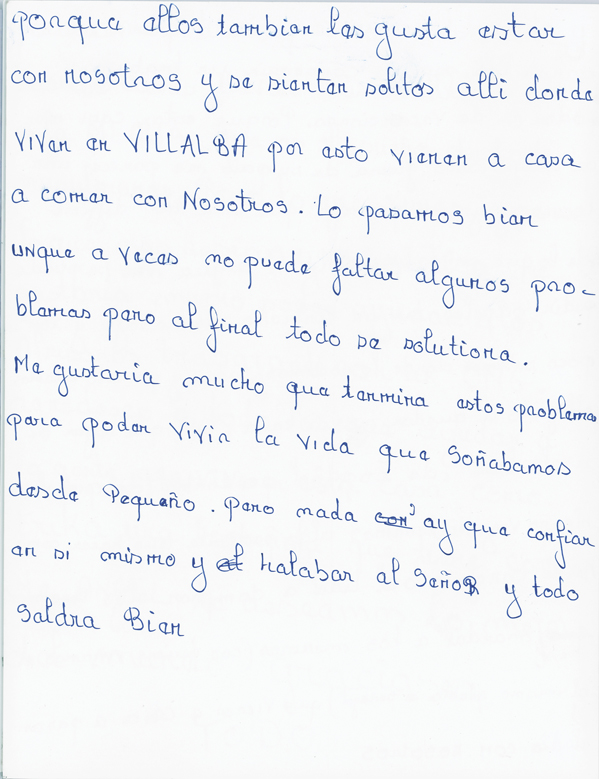 porque ellos tambien les gusta estar
con nosotros y se sienten solitos alli donde
viven en VILLALBA por esto vienen a casa
a comer con Nosotros. Lo pasamos bien
unque a veces no puede faltar algunos pro-
blemas pero al final todo se solutiona.
Me gustaria mucho que termine estos problemas
para poder vivir la vida que Soñabamos
desde Pequeño. pero nada ay que confiar
en si mismo y halabar al SeñoR y todo
Saldra Bien